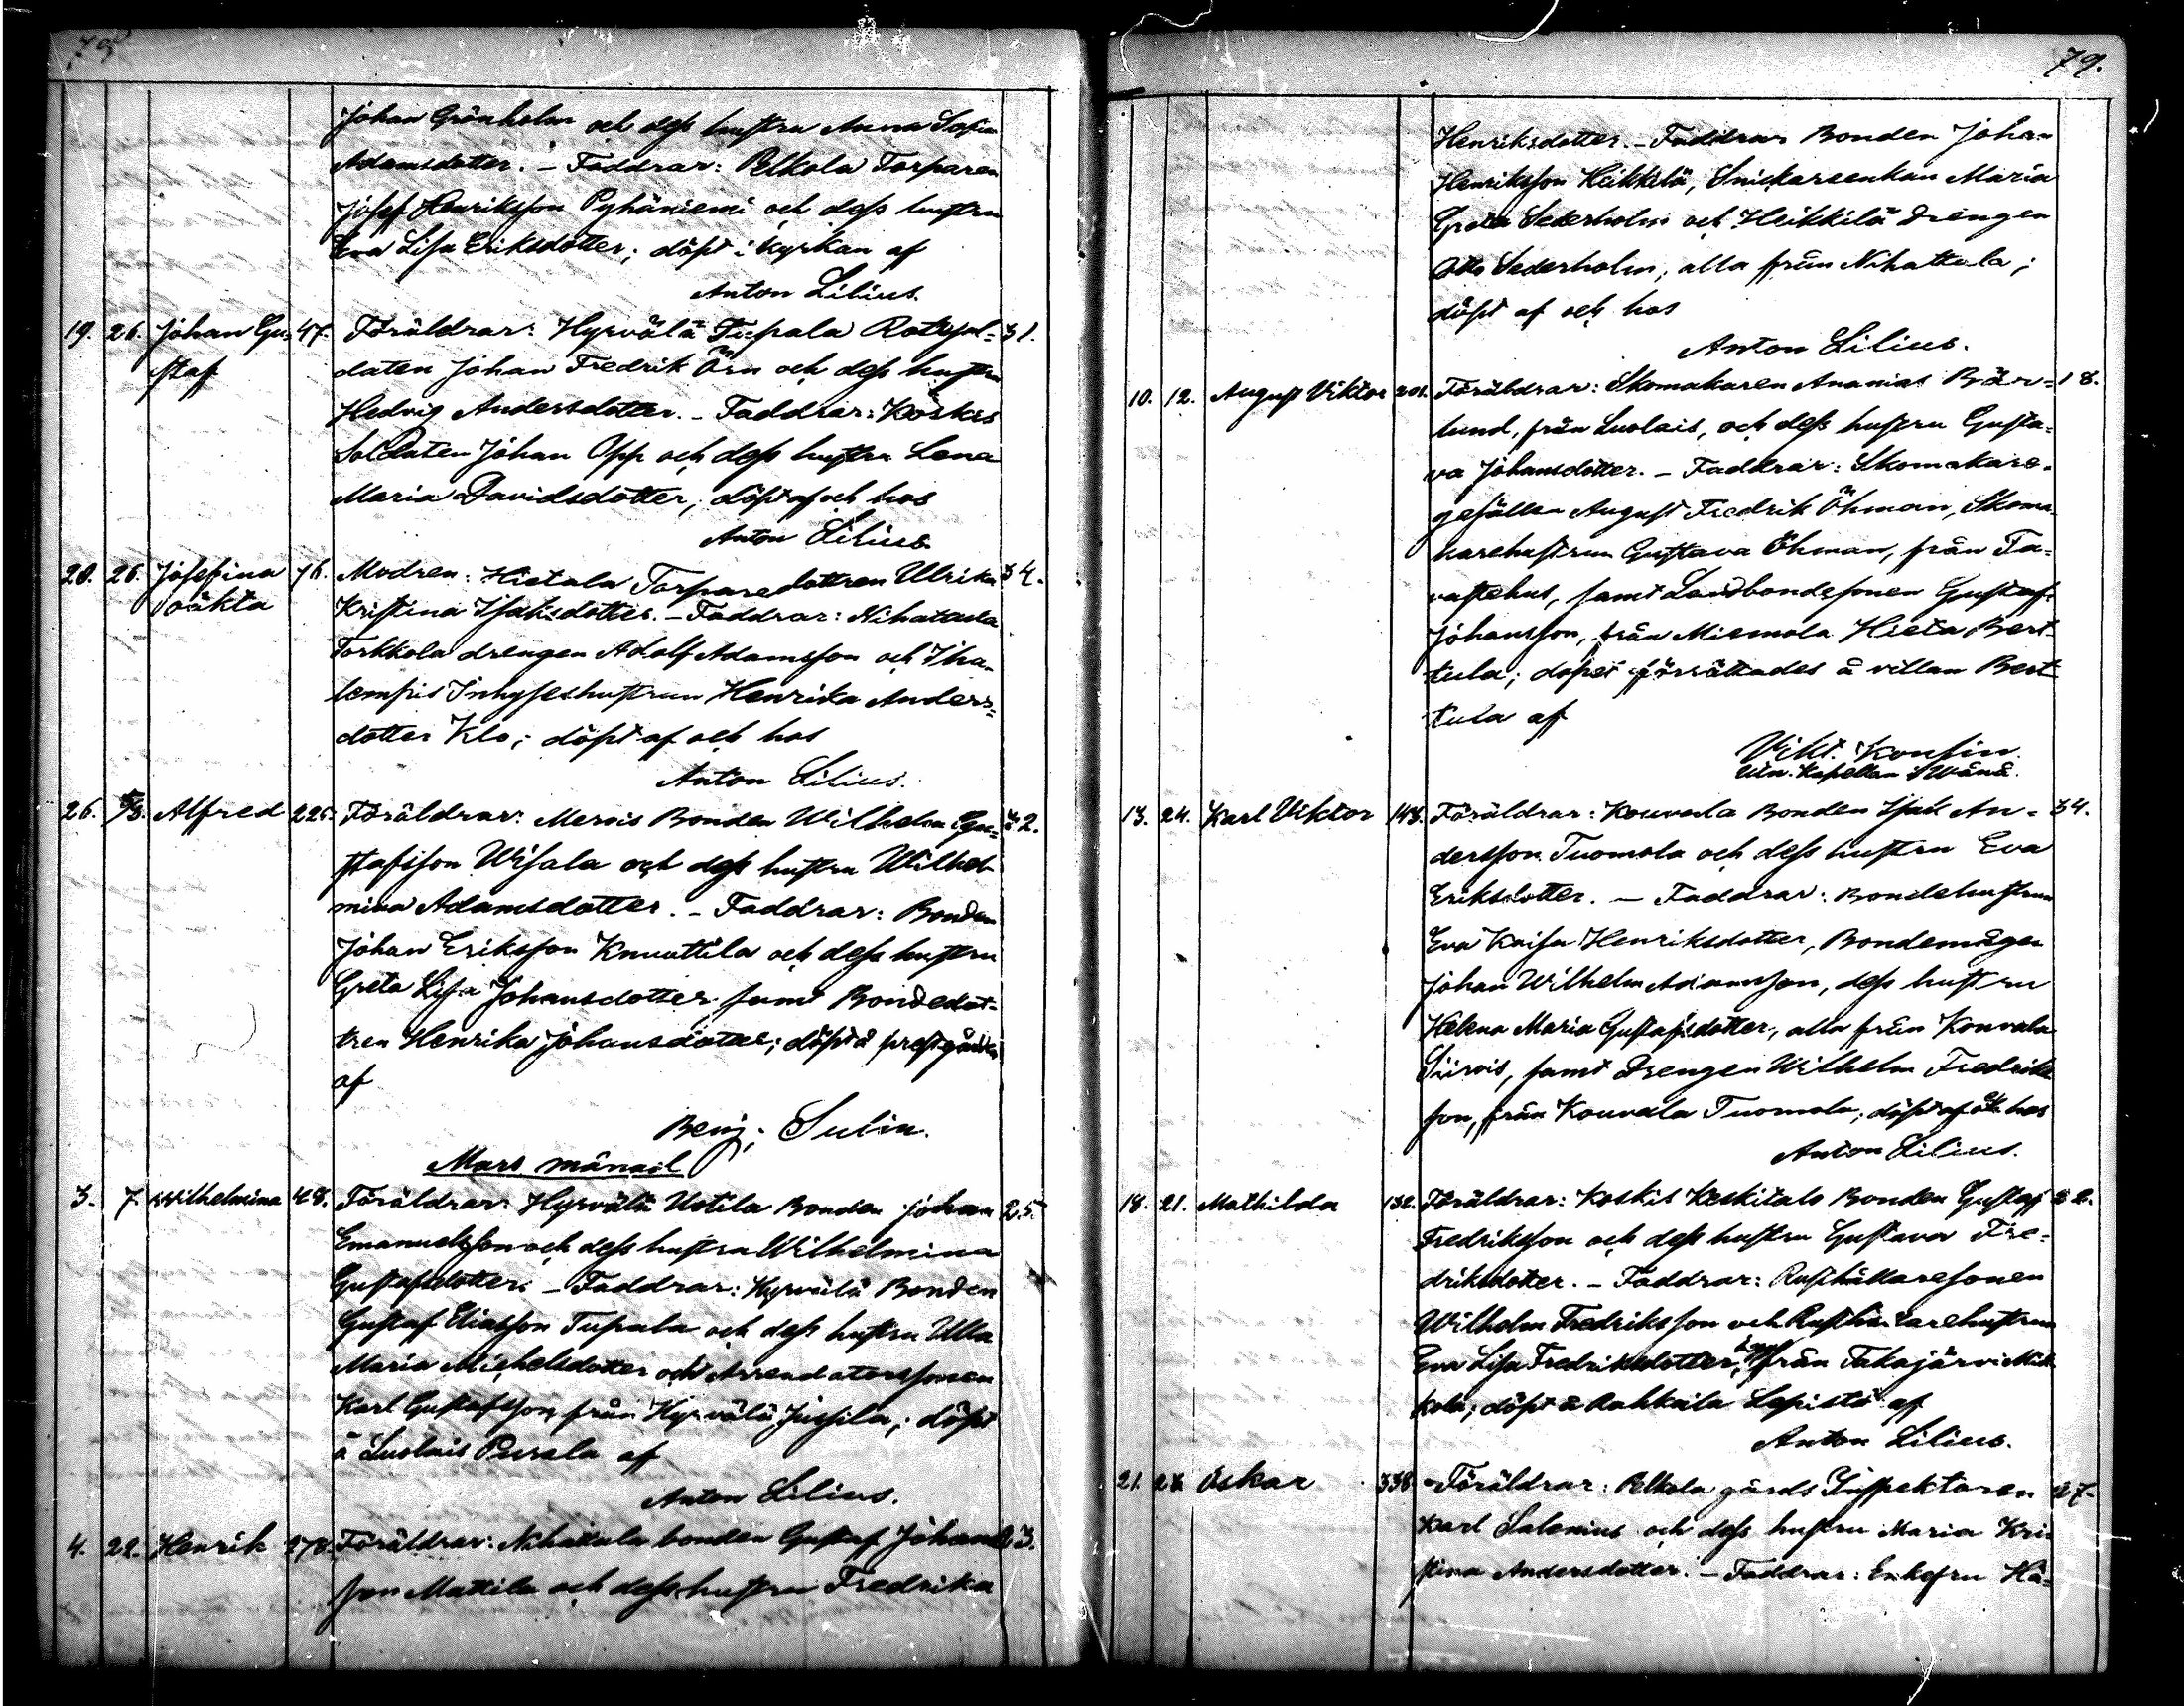 79.
Johan Grönholm och dess hustru Anna Sofia
Adamsdotter. – Faddrar: Pelkola Torparen
Josef Henriksson Pyhäniemi och dess hustru
Eva Lisa Eriksdotter; döpt i kyrkan af
Anton Lilius.
19. 26. Johan Gu= 47. Föräldrar: Hyrvälä Tupala Rotesol= 31.
staf daten Johan Fredrik Örn och dess hustru
Hedvig Andersdotter. – Faddrar: Koskis
Soldaten Johan Opp och dess hustru Lena
Maria Davidsdotter; döpt af och hos
Anton Lilius.
20. 26. Josefina 76. Modren: Hietala Torparedottren Ulrika 34.
oäkta Kristina Isaksdotter. – Faddrar: Nihattula
Torkkola drengen Adolf Adamsson och Iha=
lempis Inhyseshustrun Henrika Anders=
dotter Klo; döpt af och hos
Anton Lilius.
26. Alfred 225. Föräldrar: Mervis Bonden Wilhelm Gu= 42.
stafsson Wisala och dess hustru Wilhel=
mina Adamsdotter. – Faddrar: Bonden
Johan Eriksson Knuuttila och dess hustru
Greta Lisa Johansdotter samt Bondedot=
tren Henrika Johansdotter; döpt å prestgården
af
Benj. Sulin.
Mars månad
3. 7. Wilhelmina 48. Föräldrar: Hyrvälä Uotila Bonden Johan 25.
Emanuelsson och dess hustru Wilhelmina
Gustafsdotter. – Faddrar: Hyrvälä Bonden
Gustaf Eliasson Tupala och dess hustru Ulla
Maria Michelsdotter och Arrendatorssonen
Karl Gustafsson från Hyrvälä Jussila; döpt
å Luolais Perala af
Anton Lilius.
4. 22. Henrik 278. Föräldrar: Nihattula bonden Gustaf Johans
son Mattila och dess hustru Fredrika
79.
Henriksdotter. – Faddrar Bonden Johan
Henriksson Heikkilä, Snickareenkan Maria
Greta Sederholm och Heikkilä Drengen
Otto Sederholm, alla från Nihattula;
döpt af och hos
Anton Lilius.
10. 12. August Viktor 201. Föräldrar: Skomakaren Ananias Bär= 18.
lund, från Luolais, och dess hustru Gusta=
va Johansdotter. – Faddrar: Skomakare=
gesällen August Fredrik Öhman, Skoma=
karehustrun Gustava Öhman, från Ta=
vastehus, samt Landbondesonen Gustaf
Johansson, från Miemola Hieta Bert=
tula; dopet förrättades å villan Bert
tula af
Vikt. Konsin.
Vin. Kapellan i Wånå.
13. 24. Karl Viktor 148. Föräldrar: Kouvala Bonden Isak An= 34.
dersson Tuomola och dess hustru Eva
Eriksdotter. – Faddrar: Bondehustrun
Eva Kaisa Henriksdotter, Bondemågen
Johan Wilhelm Adamsson, dess hustru
Helena Maria Gustafsdotter, alla från Kouvala
Siirois, samt Drengen Wilhelm Fredriks
son, från Kouvala Tuomola; döpt af och hos
Anton Lilius.
18. 21. Mathilda 132. Föräldrar: Koskis Keskitalo Bonden Gustaf
Fredriksson och dess hustru Gustava Fre=
driksdotter. – Faddrar: Rusthållaresonen
Wilhelm Fredriksson och Rusthållarehustrun
Eva Lisa Fredriksdotter, från Takajärvi Mik
kola; döpt å Rahkoila Lepistö af
Anton Lilius.
21. Oskar 338. Föräldrar: Pelkola gårds Inspektoren 27.
Karl Salenius och dess hustru Maria Kri=
stina Andersdotter. – Faddrar: Enkefru Hå=